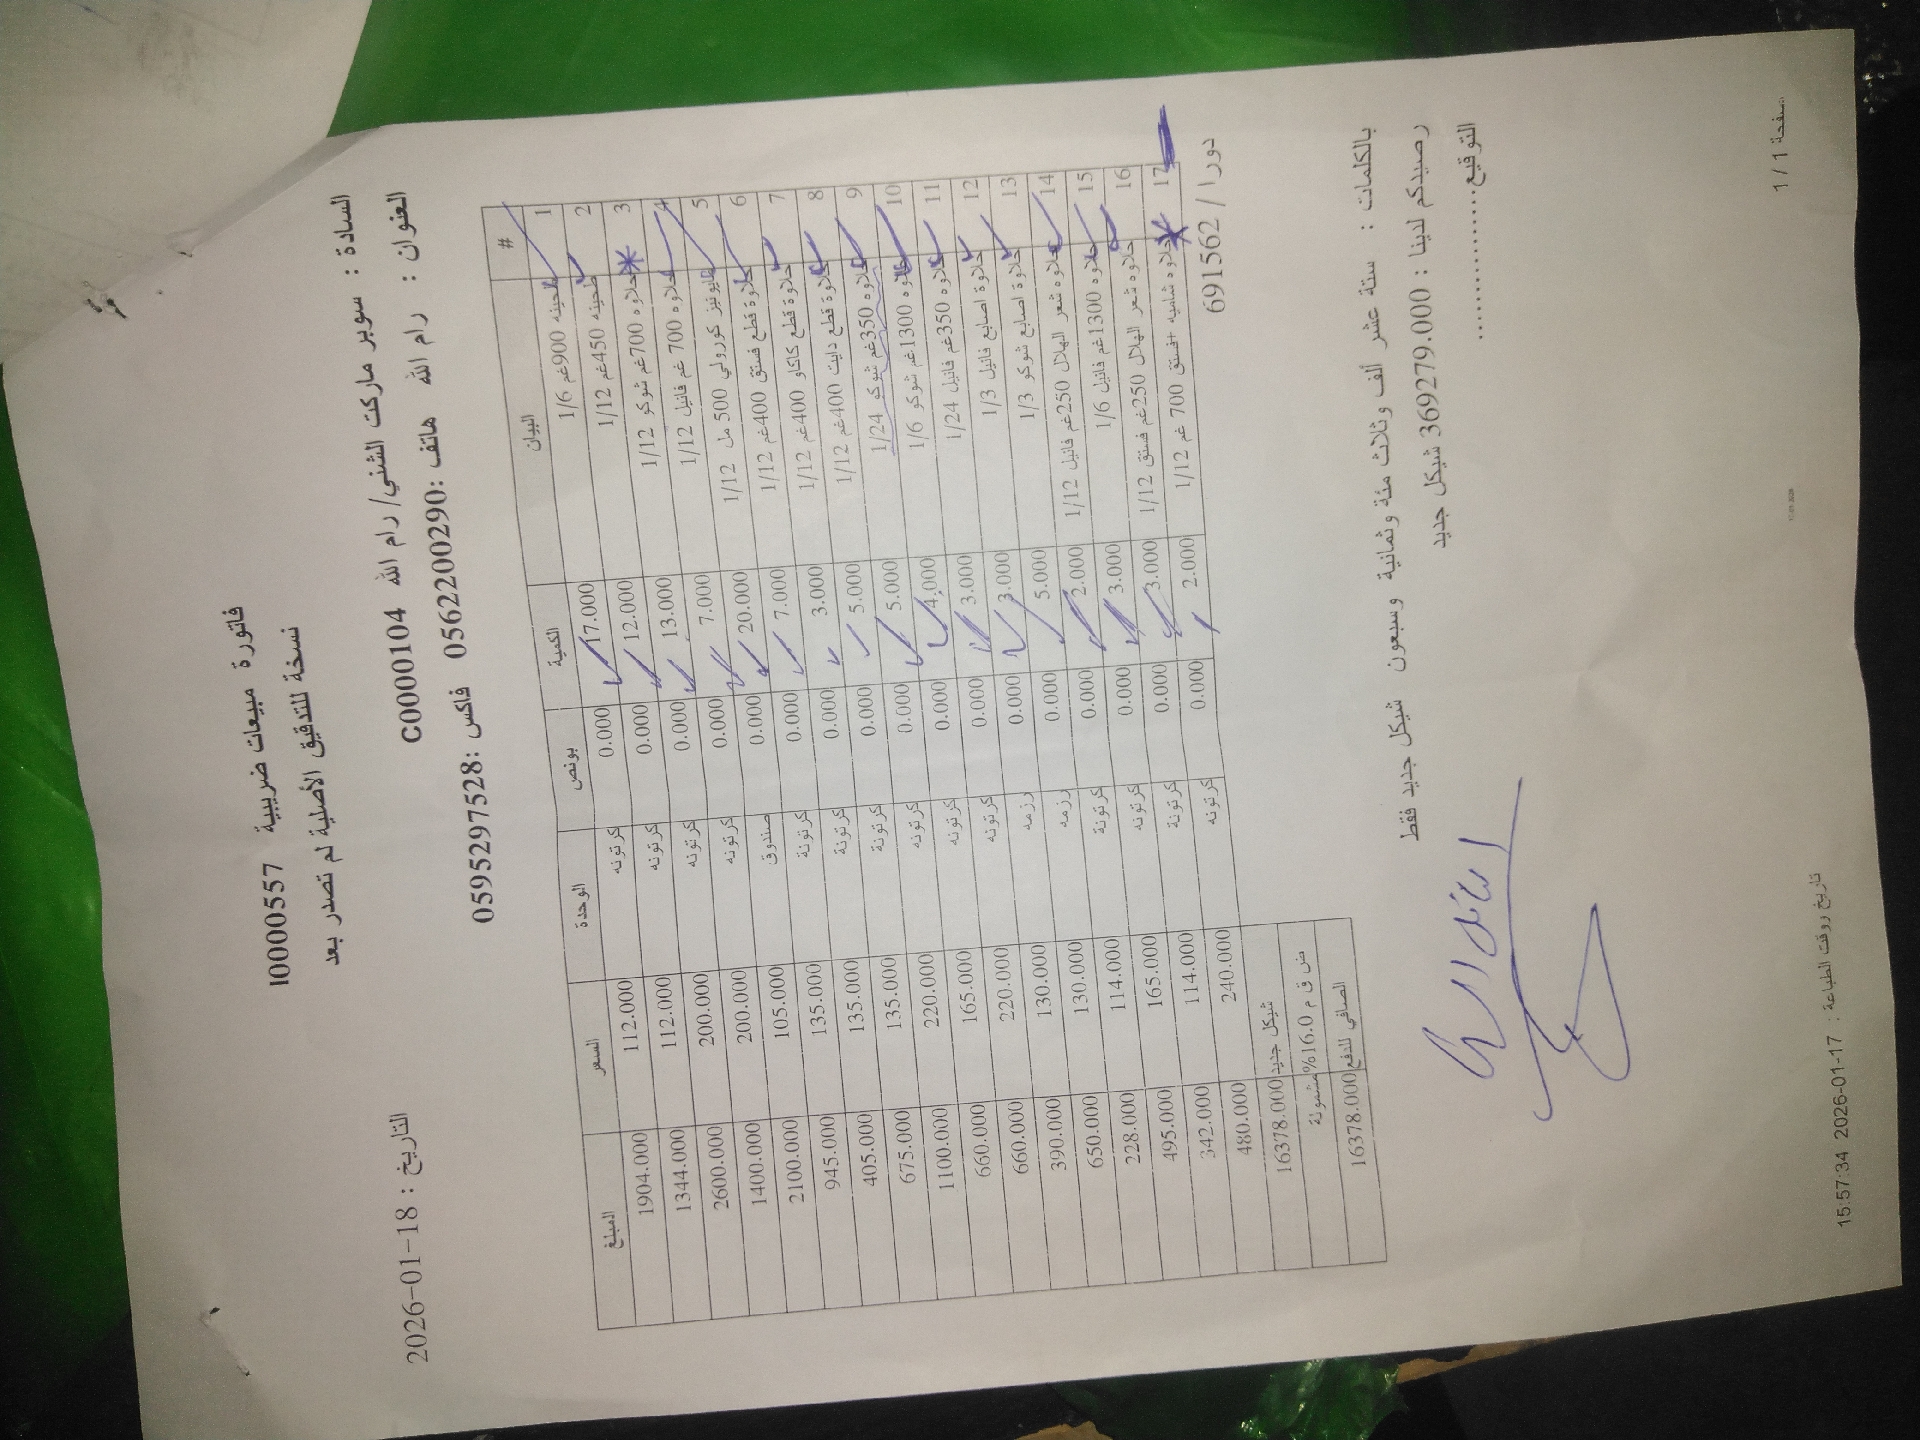 فاتورة مبيعات ضريبية I0000557
نسخة للتدقيق الأصلية لم تصدر بعد
السادة : سوبر ماركت الشني/ رام الله C0000104
التاريخ : 2026-01-18
العنوان : رام الله هاتف :0562200290 فاكس :0595297528
# البيان الكمية بونص الوحدة السعر المبلغ
1 طحينه 900غم 1/6 17.000 0.000 كرتونه 112.000 1904.000
2 طحينه 450غم 1/12 12.000 0.000 كرتونه 112.000 1344.000
3 حلاوه 700غم شوكو 1/12 13.000 0.000 كرتونه 200.000 2600.000
4 حلاوه 700 غم فانيل 1/12 7.000 0.000 كرتونه 200.000 1400.000
5 مايونيز كورولي 500 مل 1/12 20.000 0.000 صندوق 105.000 2100.000
6 حلاوة قطع فستق 400غم 1/12 7.000 0.000 كرتونة 135.000 945.000
7 حلاوة قطع كاكاو 400غم 1/12 3.000 0.000 كرتونة 135.000 405.000
8 حلاوة قطع دايت 400غم 1/12 5.000 0.000 كرتونة 135.000 675.000
9 حلاوه 350غم شوكو 1/24 5.000 0.000 كرتونه 220.000 1100.000
10 حلاوه 1300غم شوكو 1/6 4.000 0.000 كرتونه 165.000 660.000
11 حلاوه 350غم فانيل 1/24 3.000 0.000 كرتونه 220.000 660.000
12 حلاوة اصابع فانيل 1/3 3.000 0.000 رزمه 130.000 390.000
13 حلاوة اصابع شوكو 1/3 5.000 0.000 رزمه 130.000 650.000
14 حلاوه شعر الهلال 250غم فانيل 1/12 2.000 0.000 كرتونة 114.000 228.000
15 حلاوه 1300غم فانيل 1/6 3.000 0.000 كرتونه 165.000 495.000
16 حلاوه شعر الهلال 250غم فستق 1/12 3.000 0.000 كرتونة 114.000 342.000
17 حلاوه شاميه +فستق 700 غم 1/12 2.000 0.000 كرتونه 240.000 480.000
شيكل جديد 16378.000
ض ق م 16.0% مشمولة
الصافي للدفع 16378.000
دورا / 691562
بالكلمات : ستة عشر ألف وثلاث مئة وثمانية وسبعون شيكل جديد فقط
رصيدكم لدينا : 369279.000 شيكل جديد
التوقيع..................
تاريخ ووقت الطباعة : 2026-01-17 15:57:34
صفحة 1 / 1